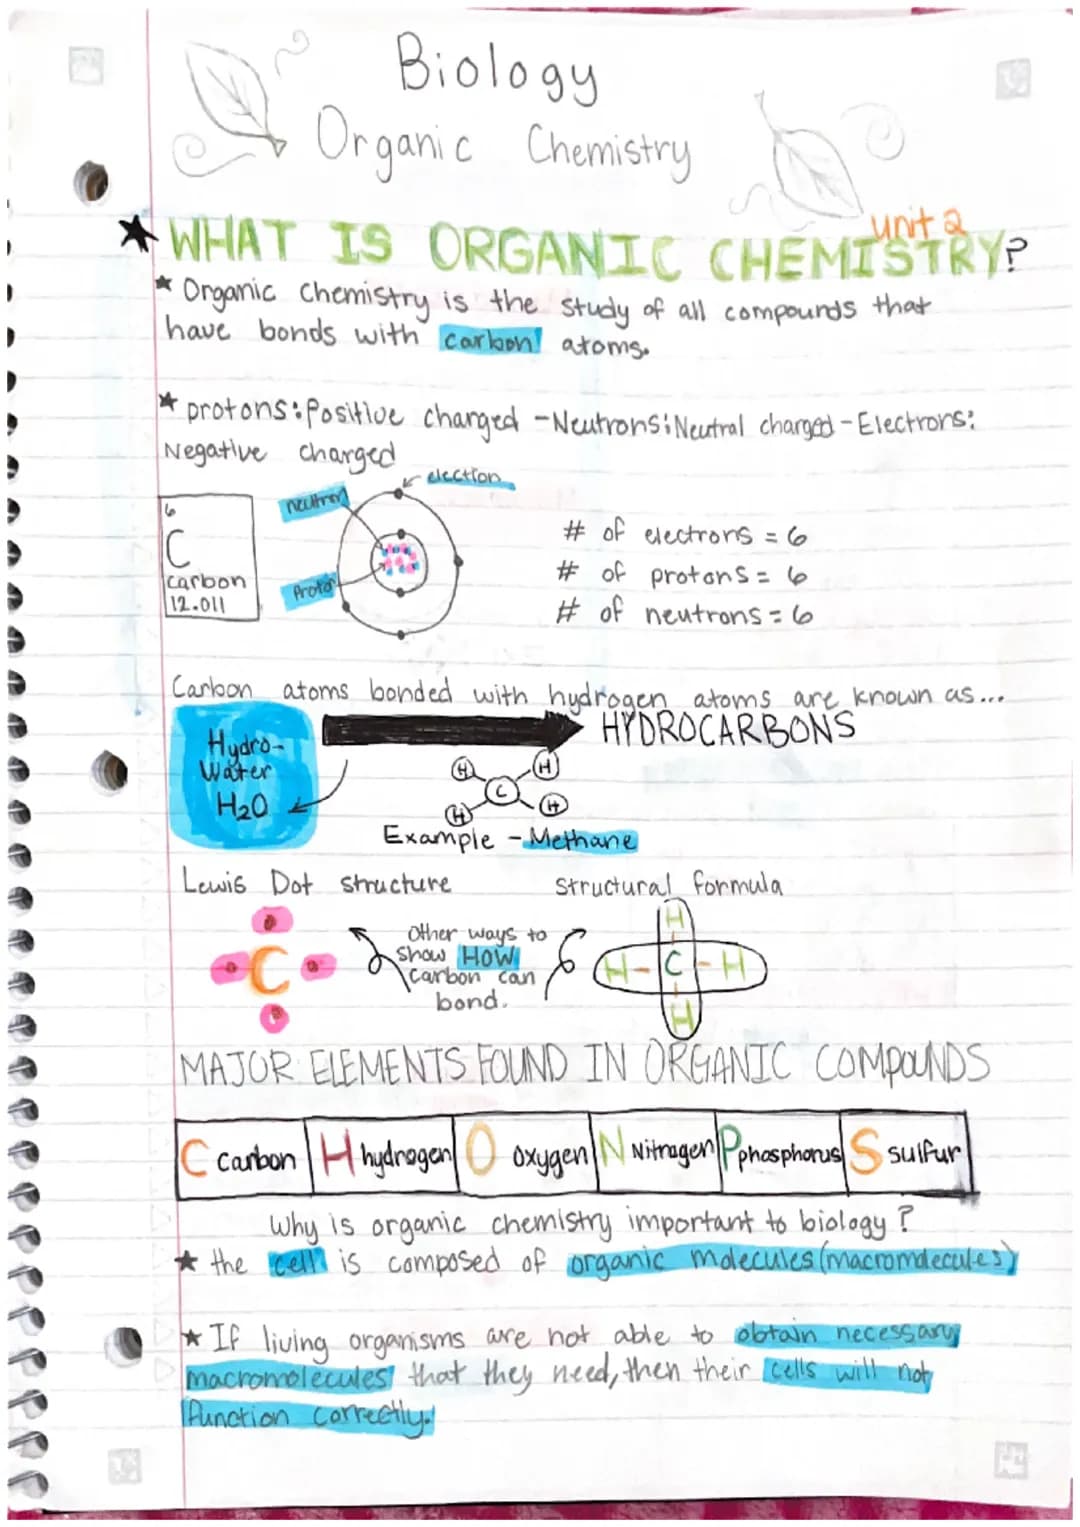 Biology
Organic Chemistry
unit 2
WHAT IS ORGANIC CHEMISTRY?
Organic Chemistry is the study of all compounds that
have bonds with carbon atoms.
protons: Positive charged - Neutrons: Neutral charged - Electrons:
Negative charged
election
neutron
Proton
6
C
carbon
12.011
# of electrons = 6
# of protons = 6
# of neutrons = 6
Carbon atoms bonded with hydrogen atoms are known as...
HYDROCARBONS
Hydro-
Water
H2O
H H
C
H H
Example - Methane
Lewis Dot structure
Structural formula
C
Other ways to
show HOW
carbon can
bond.
H
H - C - H
H
MAJOR ELEMENTS FOUND IN ORGANIC COMPOUNDS
C carbon H hydrogen O oxygen N Nitrogen P phosphorus S sulfur
Why is organic chemistry important to biology?
the cell is composed of organic molecules (macromolecules)
If living organisms are not able to obtain necessary
macromolecules that they need, then their cells will not
function correctly.